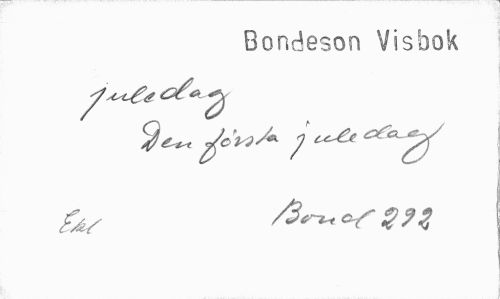 Bondeson Visbok
juledag
Den första juledag
Ekl
Bond 292